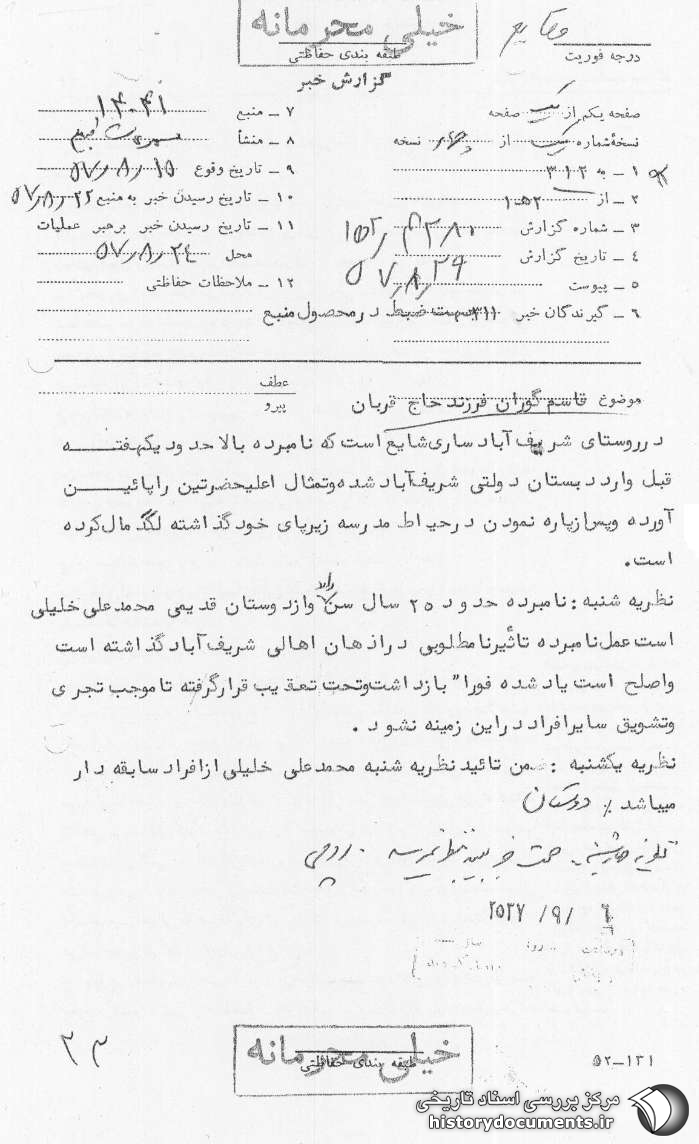 خیلی محرمانه
طبقه بندی حفاظتی
درجه فوریت
گزارش خبر
صفحه یکم از یک صفحه
نسخهٔ شماره یک از نسخه
۱ ــ به ۳۱۲
۲ ــ از
۳ ــ شماره گزارش
۴ ــ تاریخ گزارش
۵ ــ پیوست
۶ ــ گیرندگان خبر ۳۱۱ جهت ضبط در محصول منبع
۷ ــ منبع ۱۴۰۴۱
۸ ــ منشأ
۹ ــ تاریخ وقوع ۵۷٫۸٫۱۵
۱۰ ــ تاریخ رسیدن خبر به منبع ۵۷٫۸٫۲۲
۱۱ ــ تاریخ رسیدن خبر برهبر عملیات
محل ۵۷٫۸٫۲۴
۱۲ ــ ملاحظات حفاظتی
موضوع قاسم گوران فرزند حاج قربان
عطف
پیرو
در روستای شریف آباد ساری شایع است که نامبرده بالا حدود یکهفتـــــه
قبل وارد دبستان دولتی شریف آباد شده و تمثال اعلیحضرتین را پائیـــن
آورده و پس از پاره نمودن در حیاط مدرسه زیر پای خود گذاشته لگد مال کرده
است.
نظریه شنبه : نامبرده حدود ۲۵ سال سن دارد و از دوستان قدیمی محمدعلی خلیلی
است عمل نامبرده تأثیر نامطلوبی در اذهان اهالی شریف آباد گذاشته است
و اصلح است یاد شده فورا" بازداشت و تحت تعقیب قرار گرفته تا موجب تجری
و تشویق سایر افراد در این زمینه نشود .
نظریه یکشنبه : ضمن تائید نظریه شنبه محمدعلی خلیلی از افراد سابقه دار
میباشد ٪ دوستان
۶ /۹/ ۲۵۳۷
خیلی محرمانه
طبقه بندی حفاظتی
۵۲ــ۱۳۱
مرکز بررسی اسناد تاریخی
historydocuments.ir